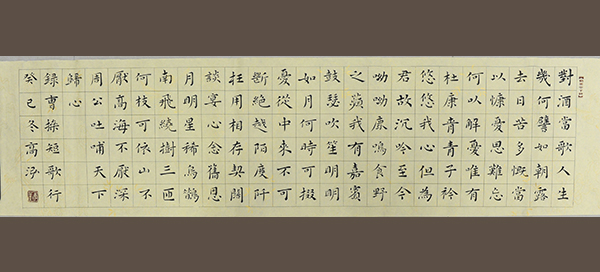 對酒當歌人生
幾何譬如朝露
去日苦多慨當
以慷憂思難忘
何以解憂惟有
杜康青青子衿
悠悠我心但為
君故沉吟至今
呦呦鹿鳴食野
之蘋我有嘉賓
鼓瑟吹笙明明
如月何時可掇
憂從中來不可
斷絕越陌度阡
枉用相存契闊
談宴心念舊恩
月明星稀烏鵲
南飛繞樹三匝
何枝可依山不
厭高海不厭深
周公吐哺天下
歸心
錄曹操短歌行
癸巳冬高